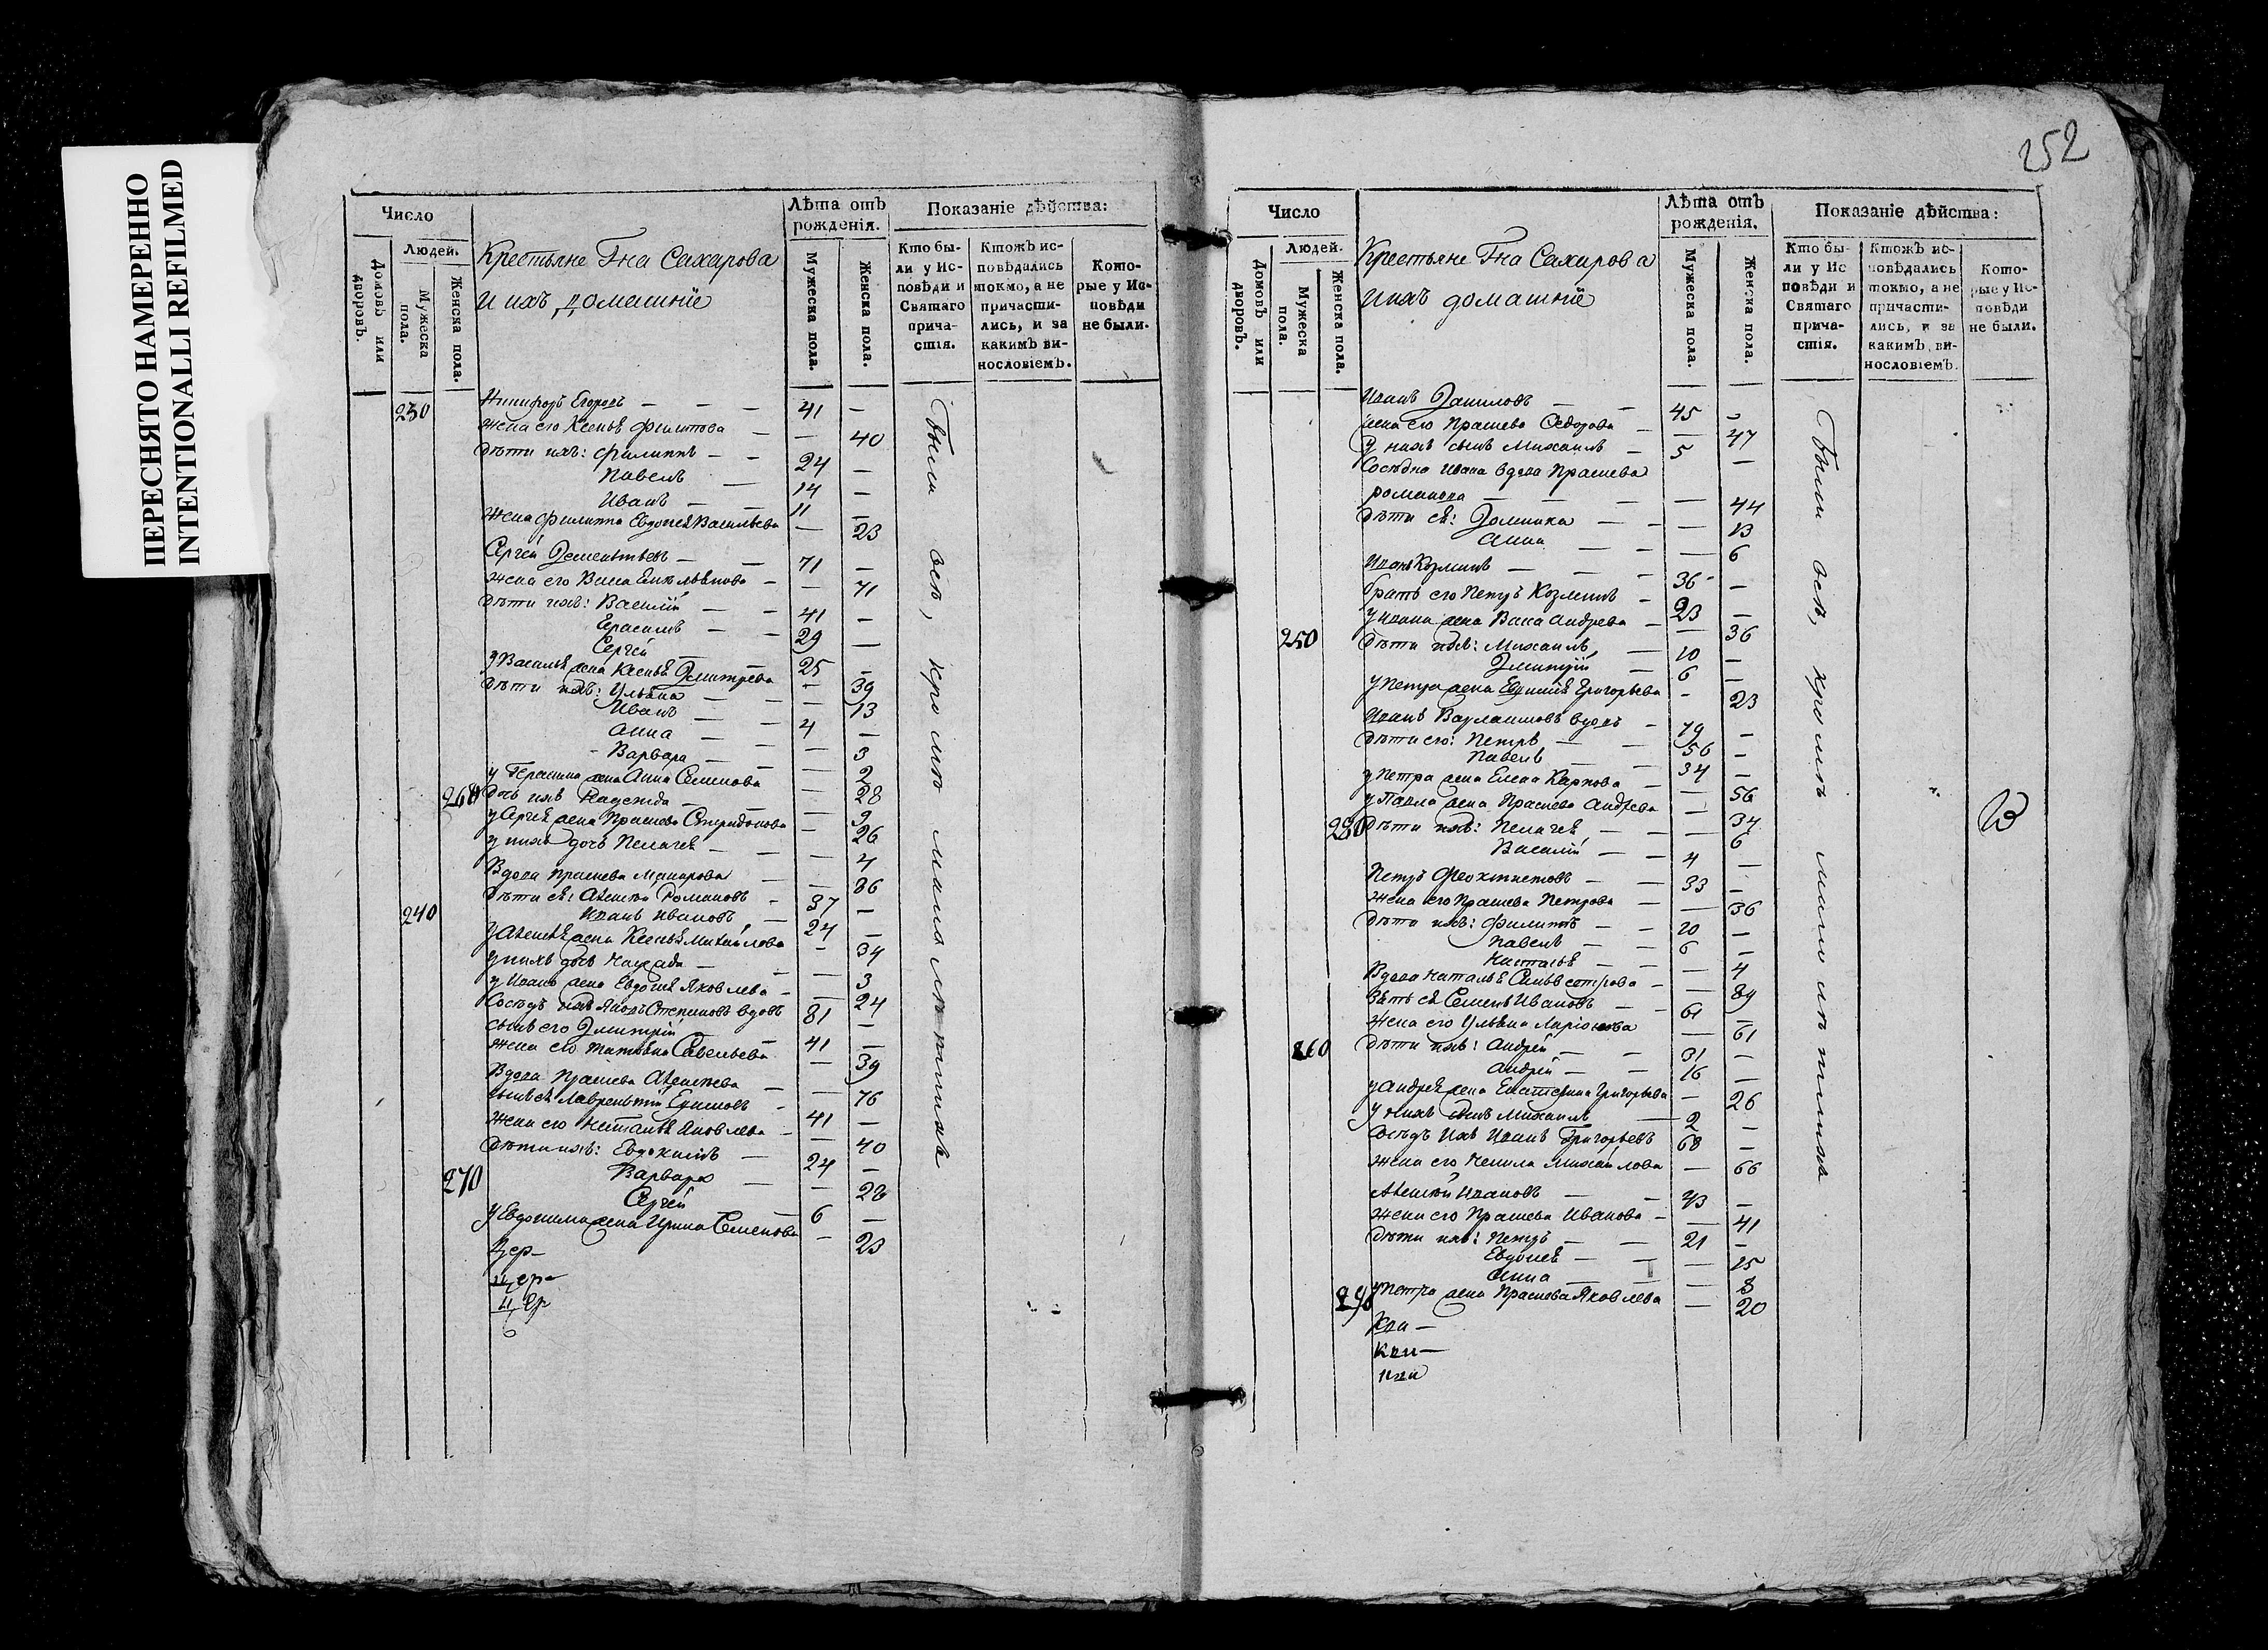 ПЕРЕСНЯТО НАМЕРЕННО
INTENTIONALLI REFILMED
Число
Людей.
Домовъ или дворовъ.
Мужеска пола.
Женска пола.
Крестьяне Гна Сахарова
и ихъ домашніе
Лѣта отъ рожденія.
Мужеска пола.
Женска пола.
Показаніе дѣйства:
Кто бы-
ли у Ис-
повѣди и
Святаго
прича-
стія.
Ктожъ ис-
повѣдались
токмо, а не
причасти-
лись, и за
какимъ ви-
нословіемъ.
Кото-
рые у Ис-
повѣди
не были.
230 Никифоръ Егоровъ — — — 41 —
жена его Ксенья Филипова — — 40
дѣти ихъ: Филиппъ — — 24 —
Павелъ — 14 —
Иванъ — — 11 —
жена Филиппа Евдокея Васильева — 23
Сергей Дементьевъ — — 71 —
жена его Васа Емельянова — — 71
дѣти ихъ: Василій — — 41 —
Герасимъ — — 29 —
Сергей — — 25 —
у Василья жена Ксенья Дмитрева — 39
дѣти ихъ: Ульяна — — — 13
Иванъ — — 4 —
Анна — — — 3
Варвара — — — 2
у Герасима жена Анна Семенова — 28
260 дочь ихъ Надежда — — — 9
у Сергея жена Прасковья Спиридонова — 26
у нихъ дочь Пелагея — — — 4
Вдова Прасковья Макарова — — 86
дѣти ея: Алексей Романовъ — 37 —
240 Иванъ Ивановъ — 24 —
у Алексея жена Ксенья Михайлова — 34
у нихъ дочь — — — 3
у Ивана жена Евдокея Яковлева — — 24
Соседъ ихъ Яковъ Степановъ вдовъ 81 —
сынъ его Дмитрій — — 41 —
жена его Татьяна Савельева — 39
Вдова Прасковья Алексеева — — 76
сынъ ея Лаврентій Ефимовъ — 41 —
жена его Наталья Яковлева — — 40
дѣти ихъ: Евдокимъ — 24 —
270 Варвара — — 28
Сергей — 6 —
у Евдокима жена Ирина Семенова — 23
Цер—
цер—
цер
Были всѣ, кромѣ малолѣтнихъ
252
Число
Людей.
Домовъ или дворовъ.
Мужеска пола.
Женска пола.
Крестьяне Гна Сахарова
и ихъ домашніе
Лѣта отъ рожденія.
Мужеска пола.
Женска пола.
Показаніе дѣйства:
Кто бы-
ли у Ис
повѣди и
Святаго
прича-
стія.
Ктожъ ис-
повѣдались
токмо, а не
причасти-
лись, и за
какимъ ви-
нословіемъ.
Кото-
рые у Ис-
повѣди
не были.
Иванъ Даниловъ — — 45 —
жена его Прасковья Федорова — — 47
у нихъ сынъ Михаилъ — 5 —
Соседка Ивана вдова Прасковья
Романова — — — — 44
дѣти ея: Домника — — — 13
Анна — — — 6
Иванъ Козминъ — — — 36 —
братъ его Петръ Козминъ — 23 —
у Ивана жена Васа Андрева — — 36
250 дѣти ихъ: Михаилъ, — 10 —
Дмитрій — 6 —
у Петра жена Евдокия Григорьева — 23
Иванъ Варламовъ вдовъ — 79 —
дѣти его: Петръ — — 56 —
Павелъ — — 34 —
у Петра жена Елена Карпова — — 56
у Павла жена Прасковья Андреева — 34
280 дѣти ихъ: Пелагея — — — 6
Василій — — 4 —
Петръ Феоктистовъ — — 33 —
жена его Прасковья Петрова — — 36
дѣти ихъ: Филиппъ — — 20 —
Павелъ — — 6 —
Наталья — — — 4
Вдова Наталья Сильвестрова — — 89
зять ея Семенъ Ивановъ — — 61 —
жена его Ульяна Ларіонова — 61
260 дѣти ихъ: Андрей — — 31 —
Андрей — — 16 —
у Андрея жена Екатерина Григорьева — 26
у нихъ сынъ Михаилъ — 2 —
Соседъ ихъ Иванъ Григорьевъ 68 —
жена его Ненила Михайлова — 66
Алексей Ивановъ — — 43 —
жена его Прасковья Иванова — — 41
дѣти ихъ: Петръ — — 21 —
Евдокея — — — 15
Анна — — — 8
290 у Петра жена Прасковья Яковлева — 20
Были всѣ, кромѣ малолѣтнихъ